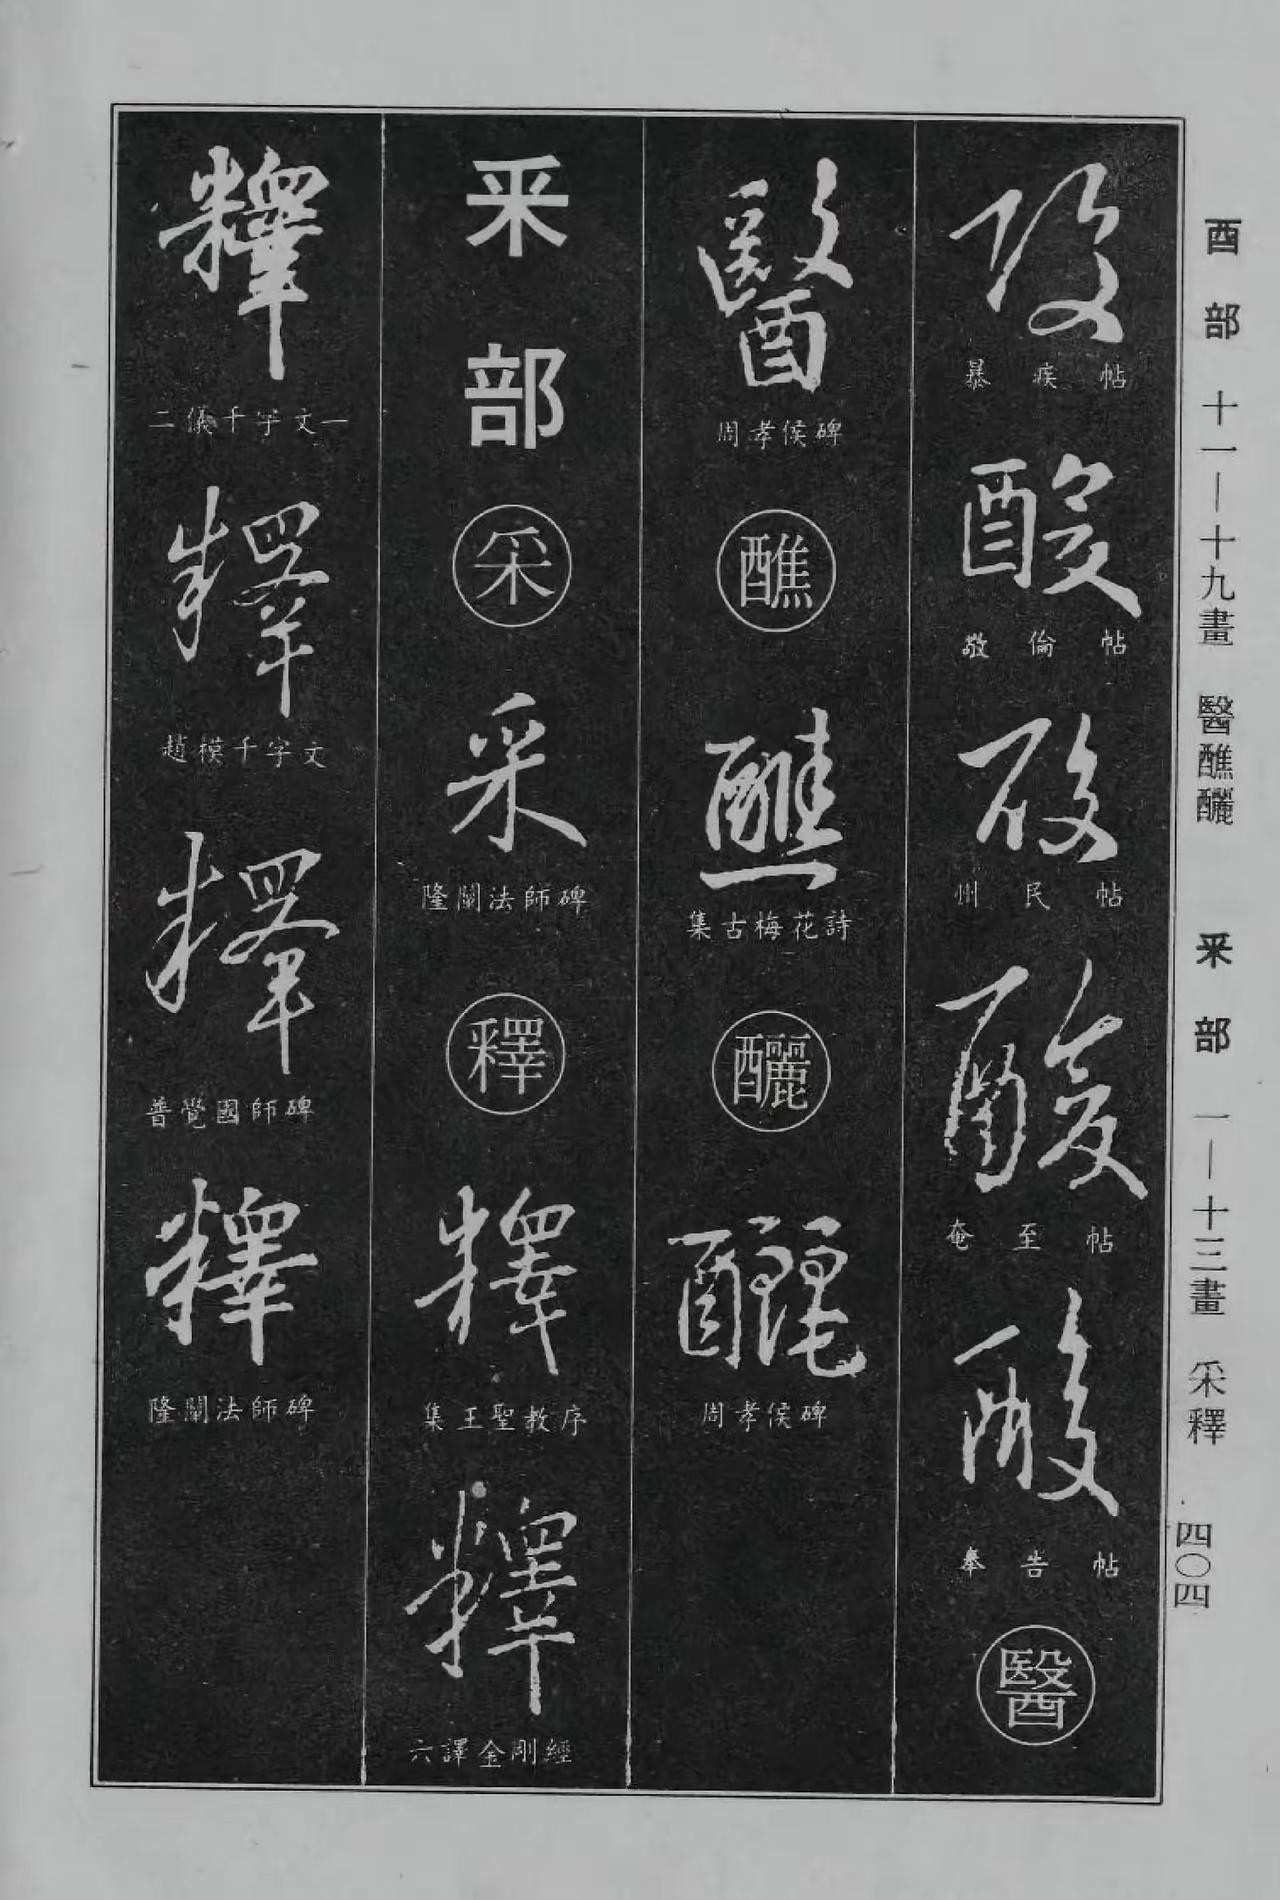 酉部 十一—十九畫 醫醮釃 釆部 一—十三畫 采釋 四〇四
酸
暴疾帖
酸
敬倫帖
酸
州民帖
酸
奄至帖
酸
奉告帖
醫
醫
周孝侯碑
醮
醮
集古梅花詩
釃
釃
周孝侯碑
釆部
采
采
隆闡法師碑
釋
釋
集王聖教序
釋
六譯金剛經
釋
二儀千字文一
釋
趙模千字文
釋
普覺國師碑
釋
隆闡法師碑